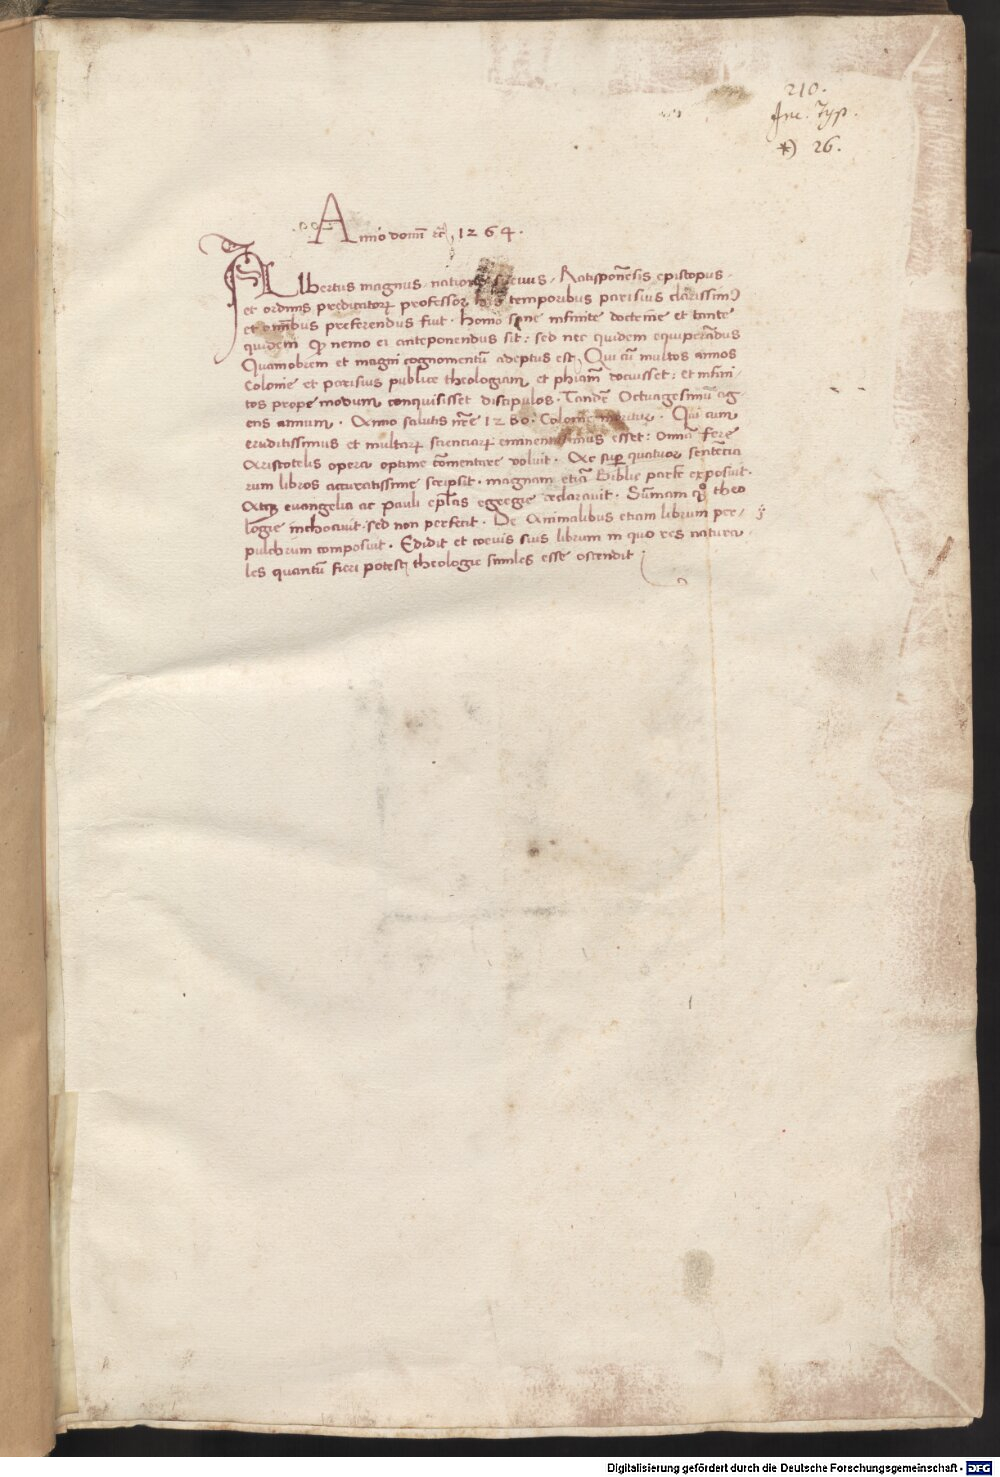 210.
Inc. Typ.
*) 26.
Anno domi ec. 1264.
ALbertus magnus natione suevus. Ratisponēsis episcopus.
et ordinis predicatoꝝ professor his temporibus parisius clarissimꝰ
et omībus preferendus fuit. homo sane infinite doctrine et tante
quidem ꝙ nemo ei anteponendus sit: sed nec quidem equiperādus
Quamobrem et magni cognomentū adeptus est, Qui cū multos annos
Colonie et parisius publice theologiam et phiam̄ docuisset: et infini-
tos prope modum conquisisset discipulos. Tandē Octuagesimū ag
ens annum. Anno salutis nr̄e 1280. Colonie moritur. Qui cum
eruditissimus et multaꝝ scienciaꝝ eminentissimus esset: omīa fere
Aristotelis opera optime cōmentare voluit. Ac sup̱ quatuor sentēcia
rum libros accuratissime scripsit. magnam etiā Biblie partē exposuit.
Atqꝫ evangelia ac Pauli ep̄las egregie declaravit. Sūmam qͦꝫ theo
logie inchoavit. sed non perfecit. De Animalibus etiam librum per/
pulchrum composuit. Edidit et coevis suis librum in quo res natura/
les quantū fieri potest theologie similes esse ostendit
Digitalisierung gefördert durch die Deutsche Forschungsgemeinschaft - DFG